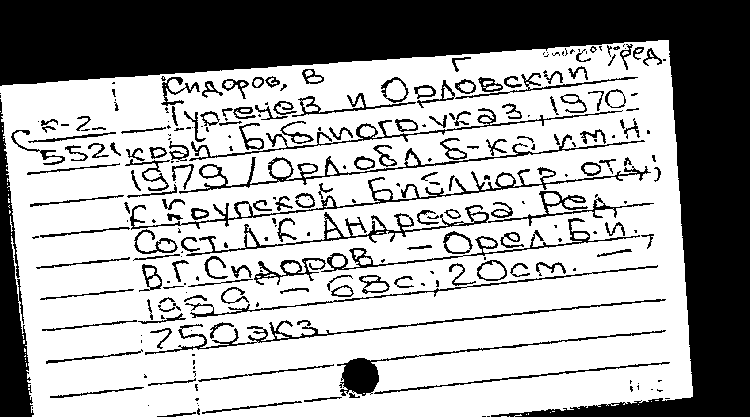 Сидоров, В Г ред.
Тургенев и Орловский
К-2
5521
край: Библиогр. указ., 1970-
1979 / Орл. обл. б-ка им. Н.
К. Крупской. Библиогр. отд.;
Сост. Л.К. Андреева; Ред.
В.Г. Сидоров. — Орел: Б.и.,
1989. — 68 с.; 20 см. —
750 экз.